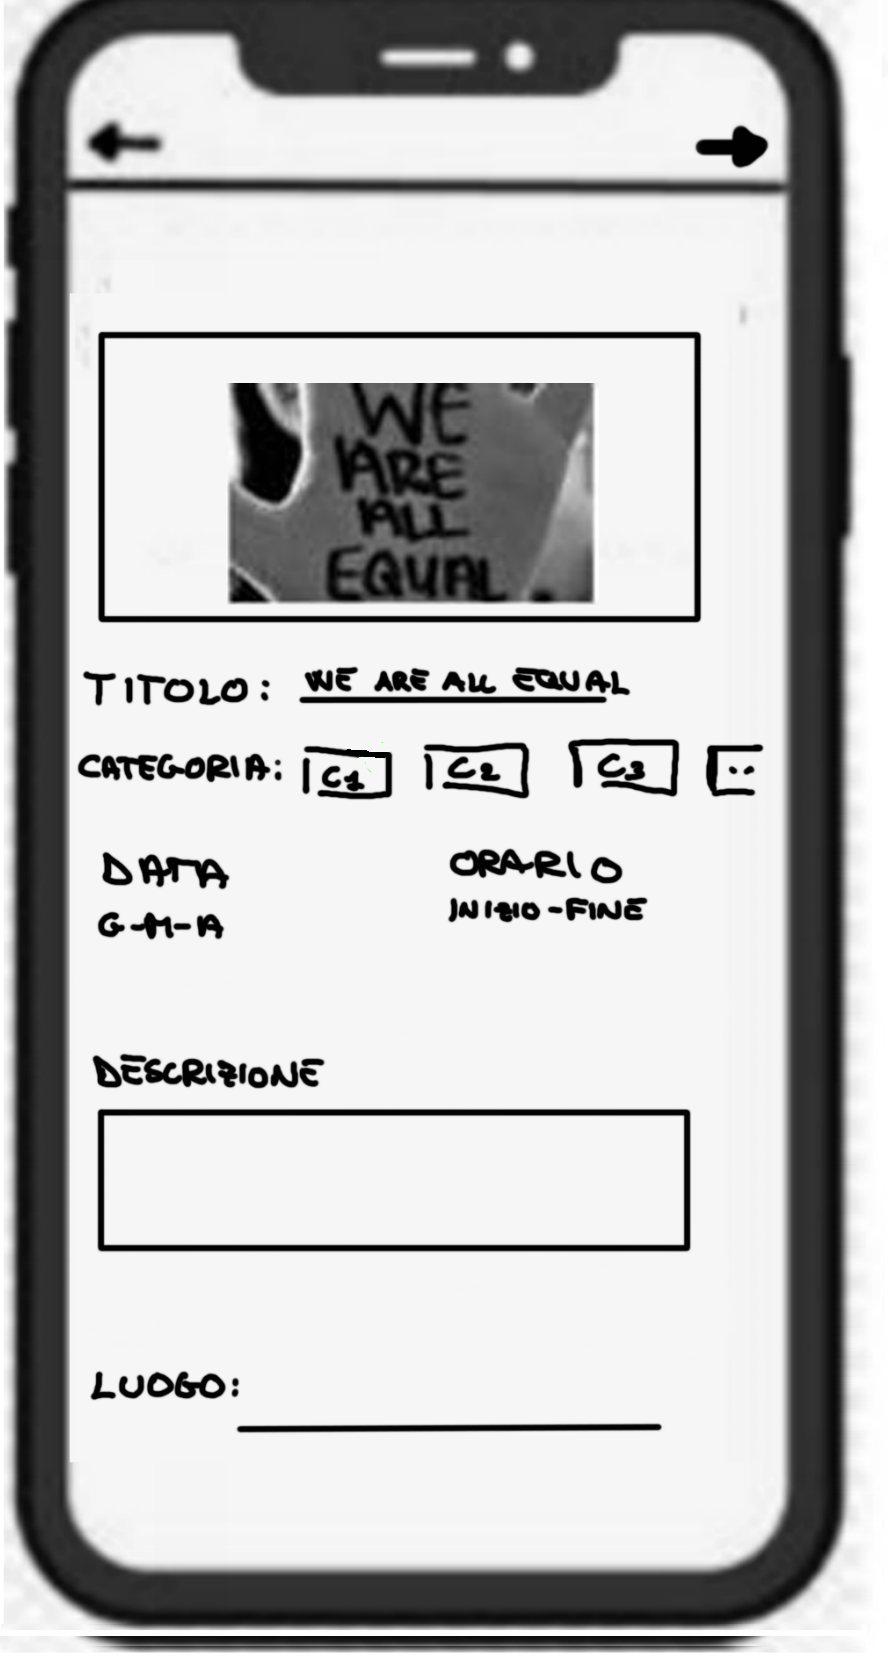 WE
ARE
ALL
EQUAL
TITOLO: WE ARE ALL EQUAL
CATEGORIA: C1 C2 C3 ..
DATA ORARIO
G-M-A INIZIO-FINE
DESCRIZIONE
LUOGO: